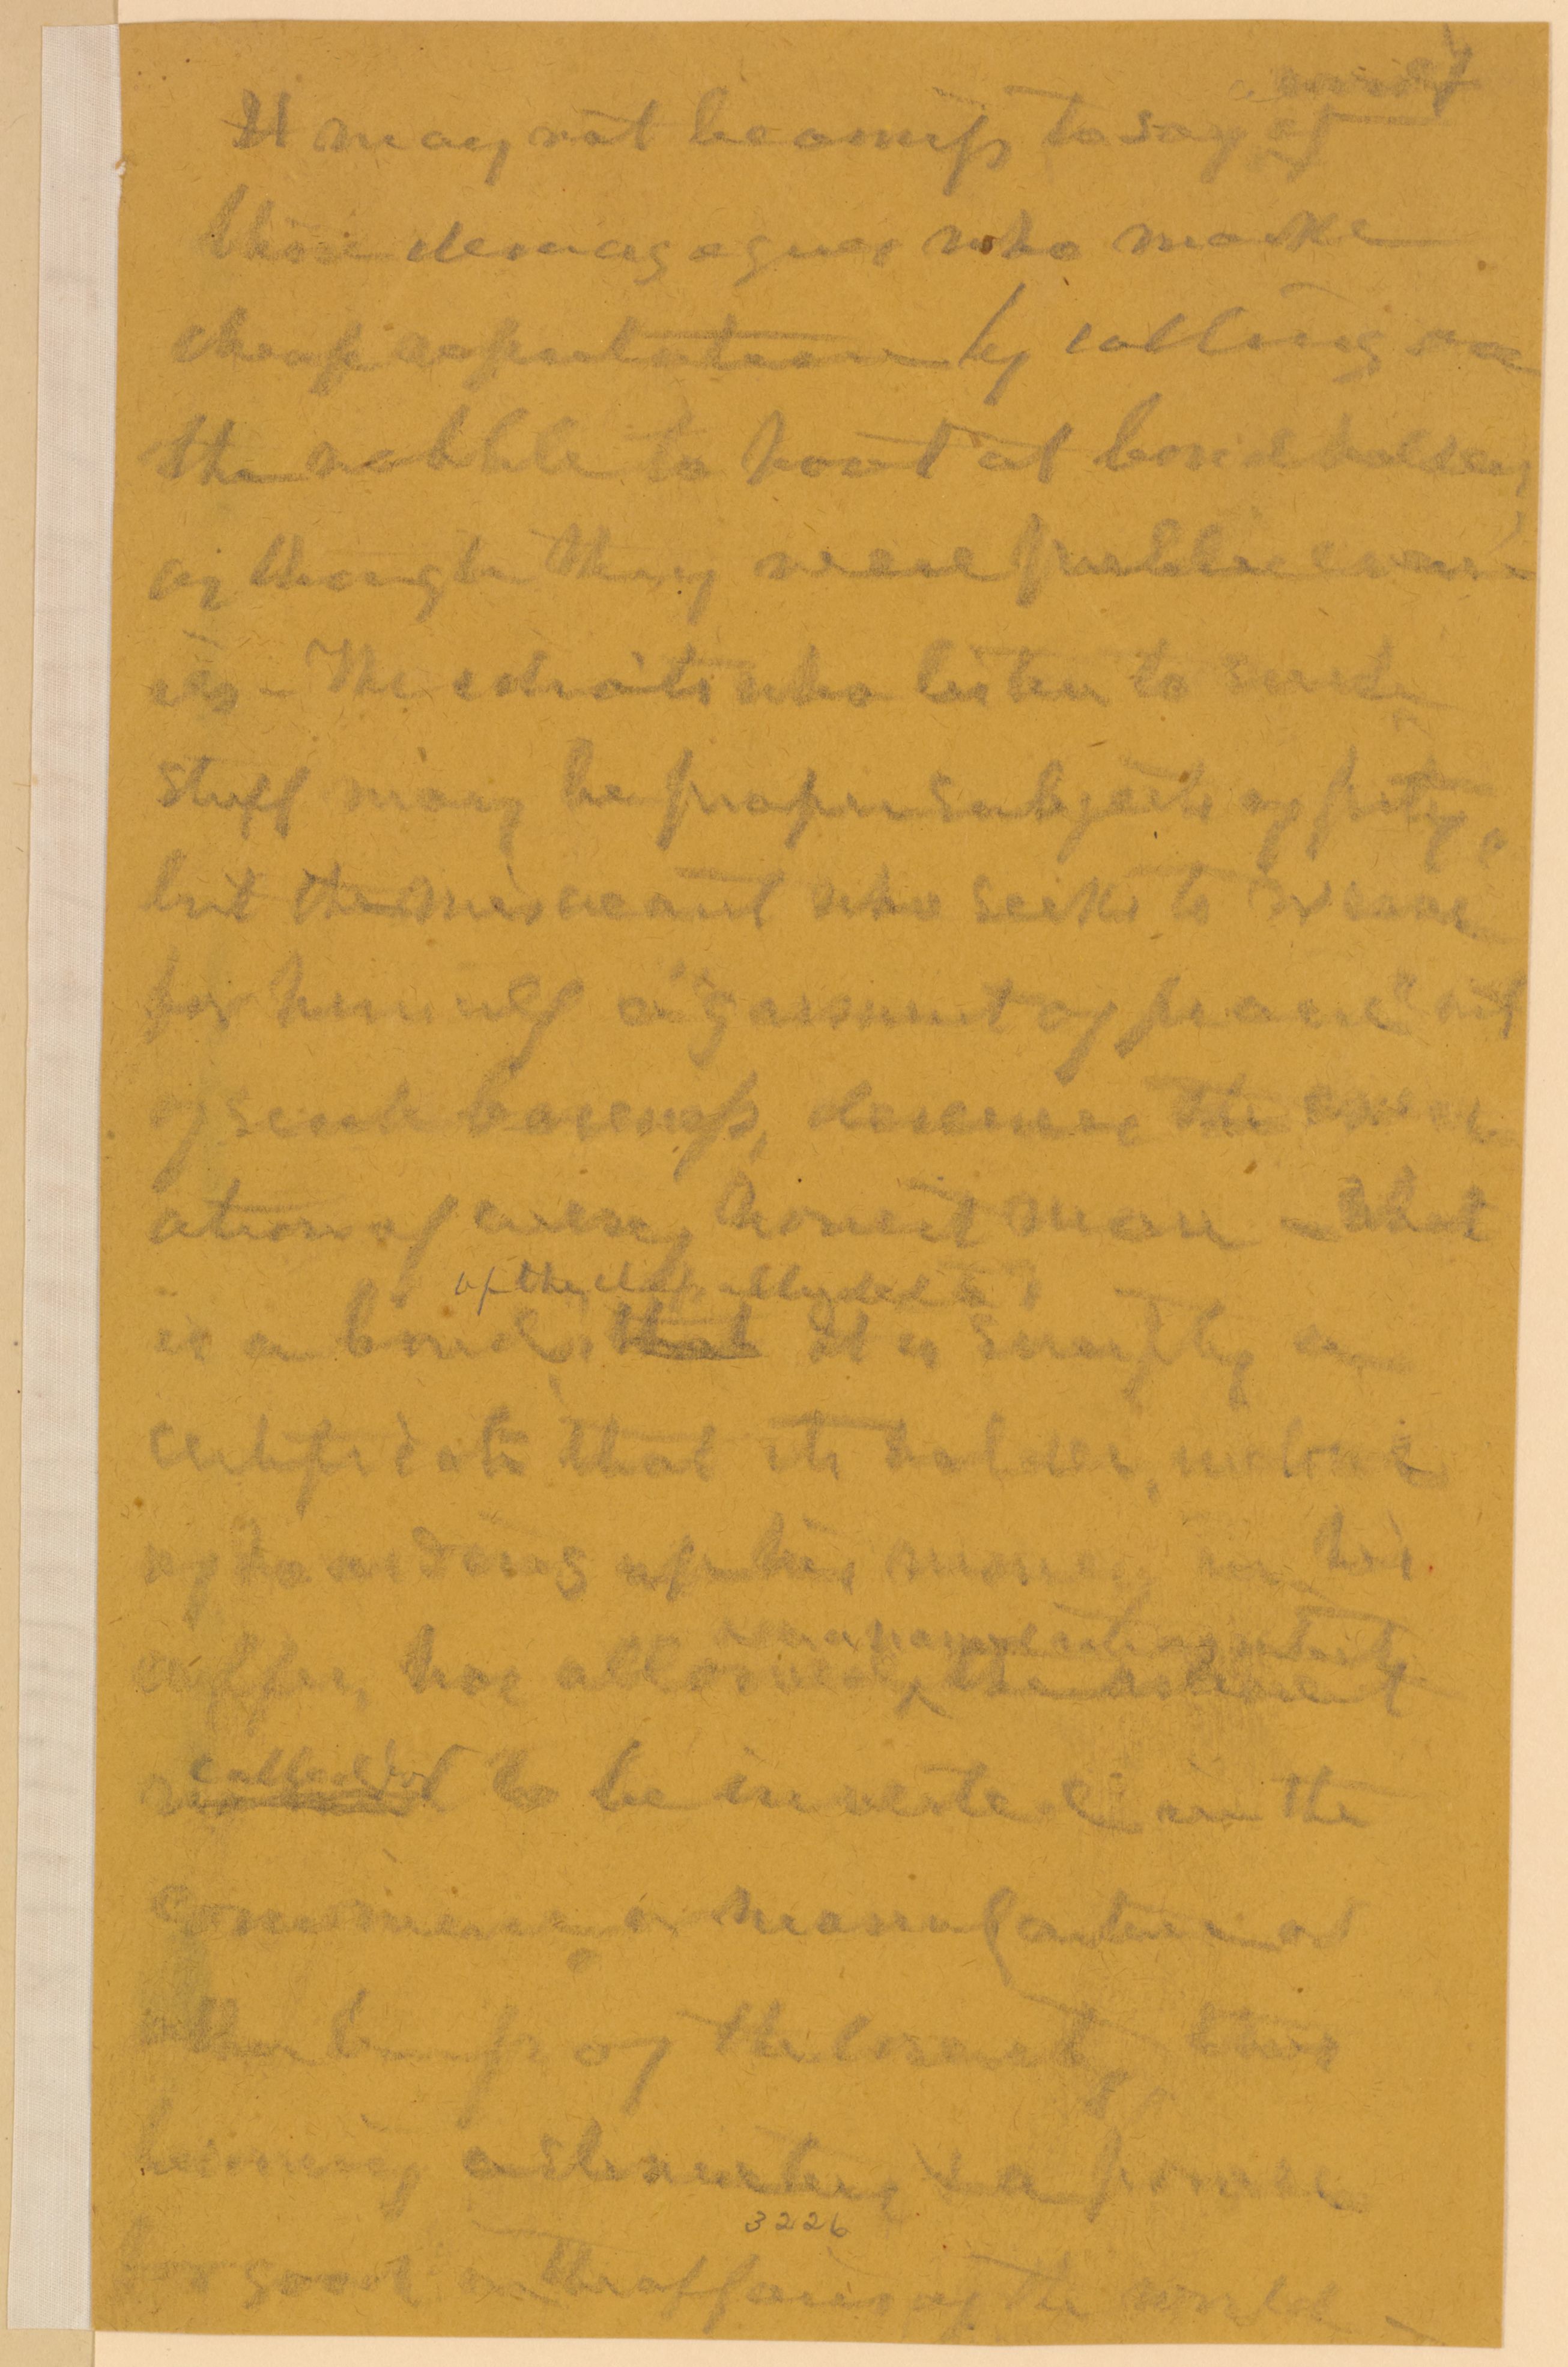 a word
It may not be amiss to say of
those demagogues who make
cheap reputation by calling on
the rabble to hoot at bondholders
as though they were public enem-
ies - The idiots who listen to such
stuff may be proper subjects of pity,
but the miscreant who seeks to weave
for himself a "garment of praise" out
of such baseness, deserves the execr
ation of every honest man - What
of the debt
is a bond, that It is simply a
certificate that its holder, instead
of hoarding up his money in his
coffer, has allowed, the
called for to be invested in the
commerce or manufactures or
of the country, thus
becoming a & a power
for good in the affairs of the world -
3226